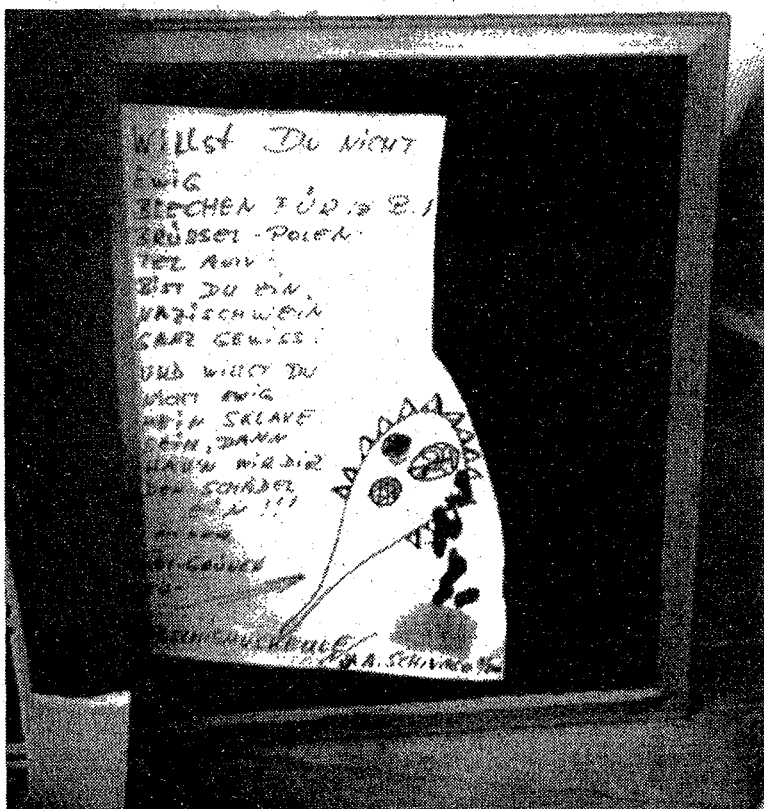 WILLST DU NICHT
EWIG
BLECHEN FÜR
BRÜSSEL-POLEN
TEL AVIV
BIST DU EIN
NAZISCHWEIN
GANZ GEWISS.
UND WILLST DU
NICHT EWIG
MEIN SKLAVE
SEIN, DANN
HAUEN WIR DIR
DEN SCHÄDEL
EIN!!!
A. SCHIVAGO